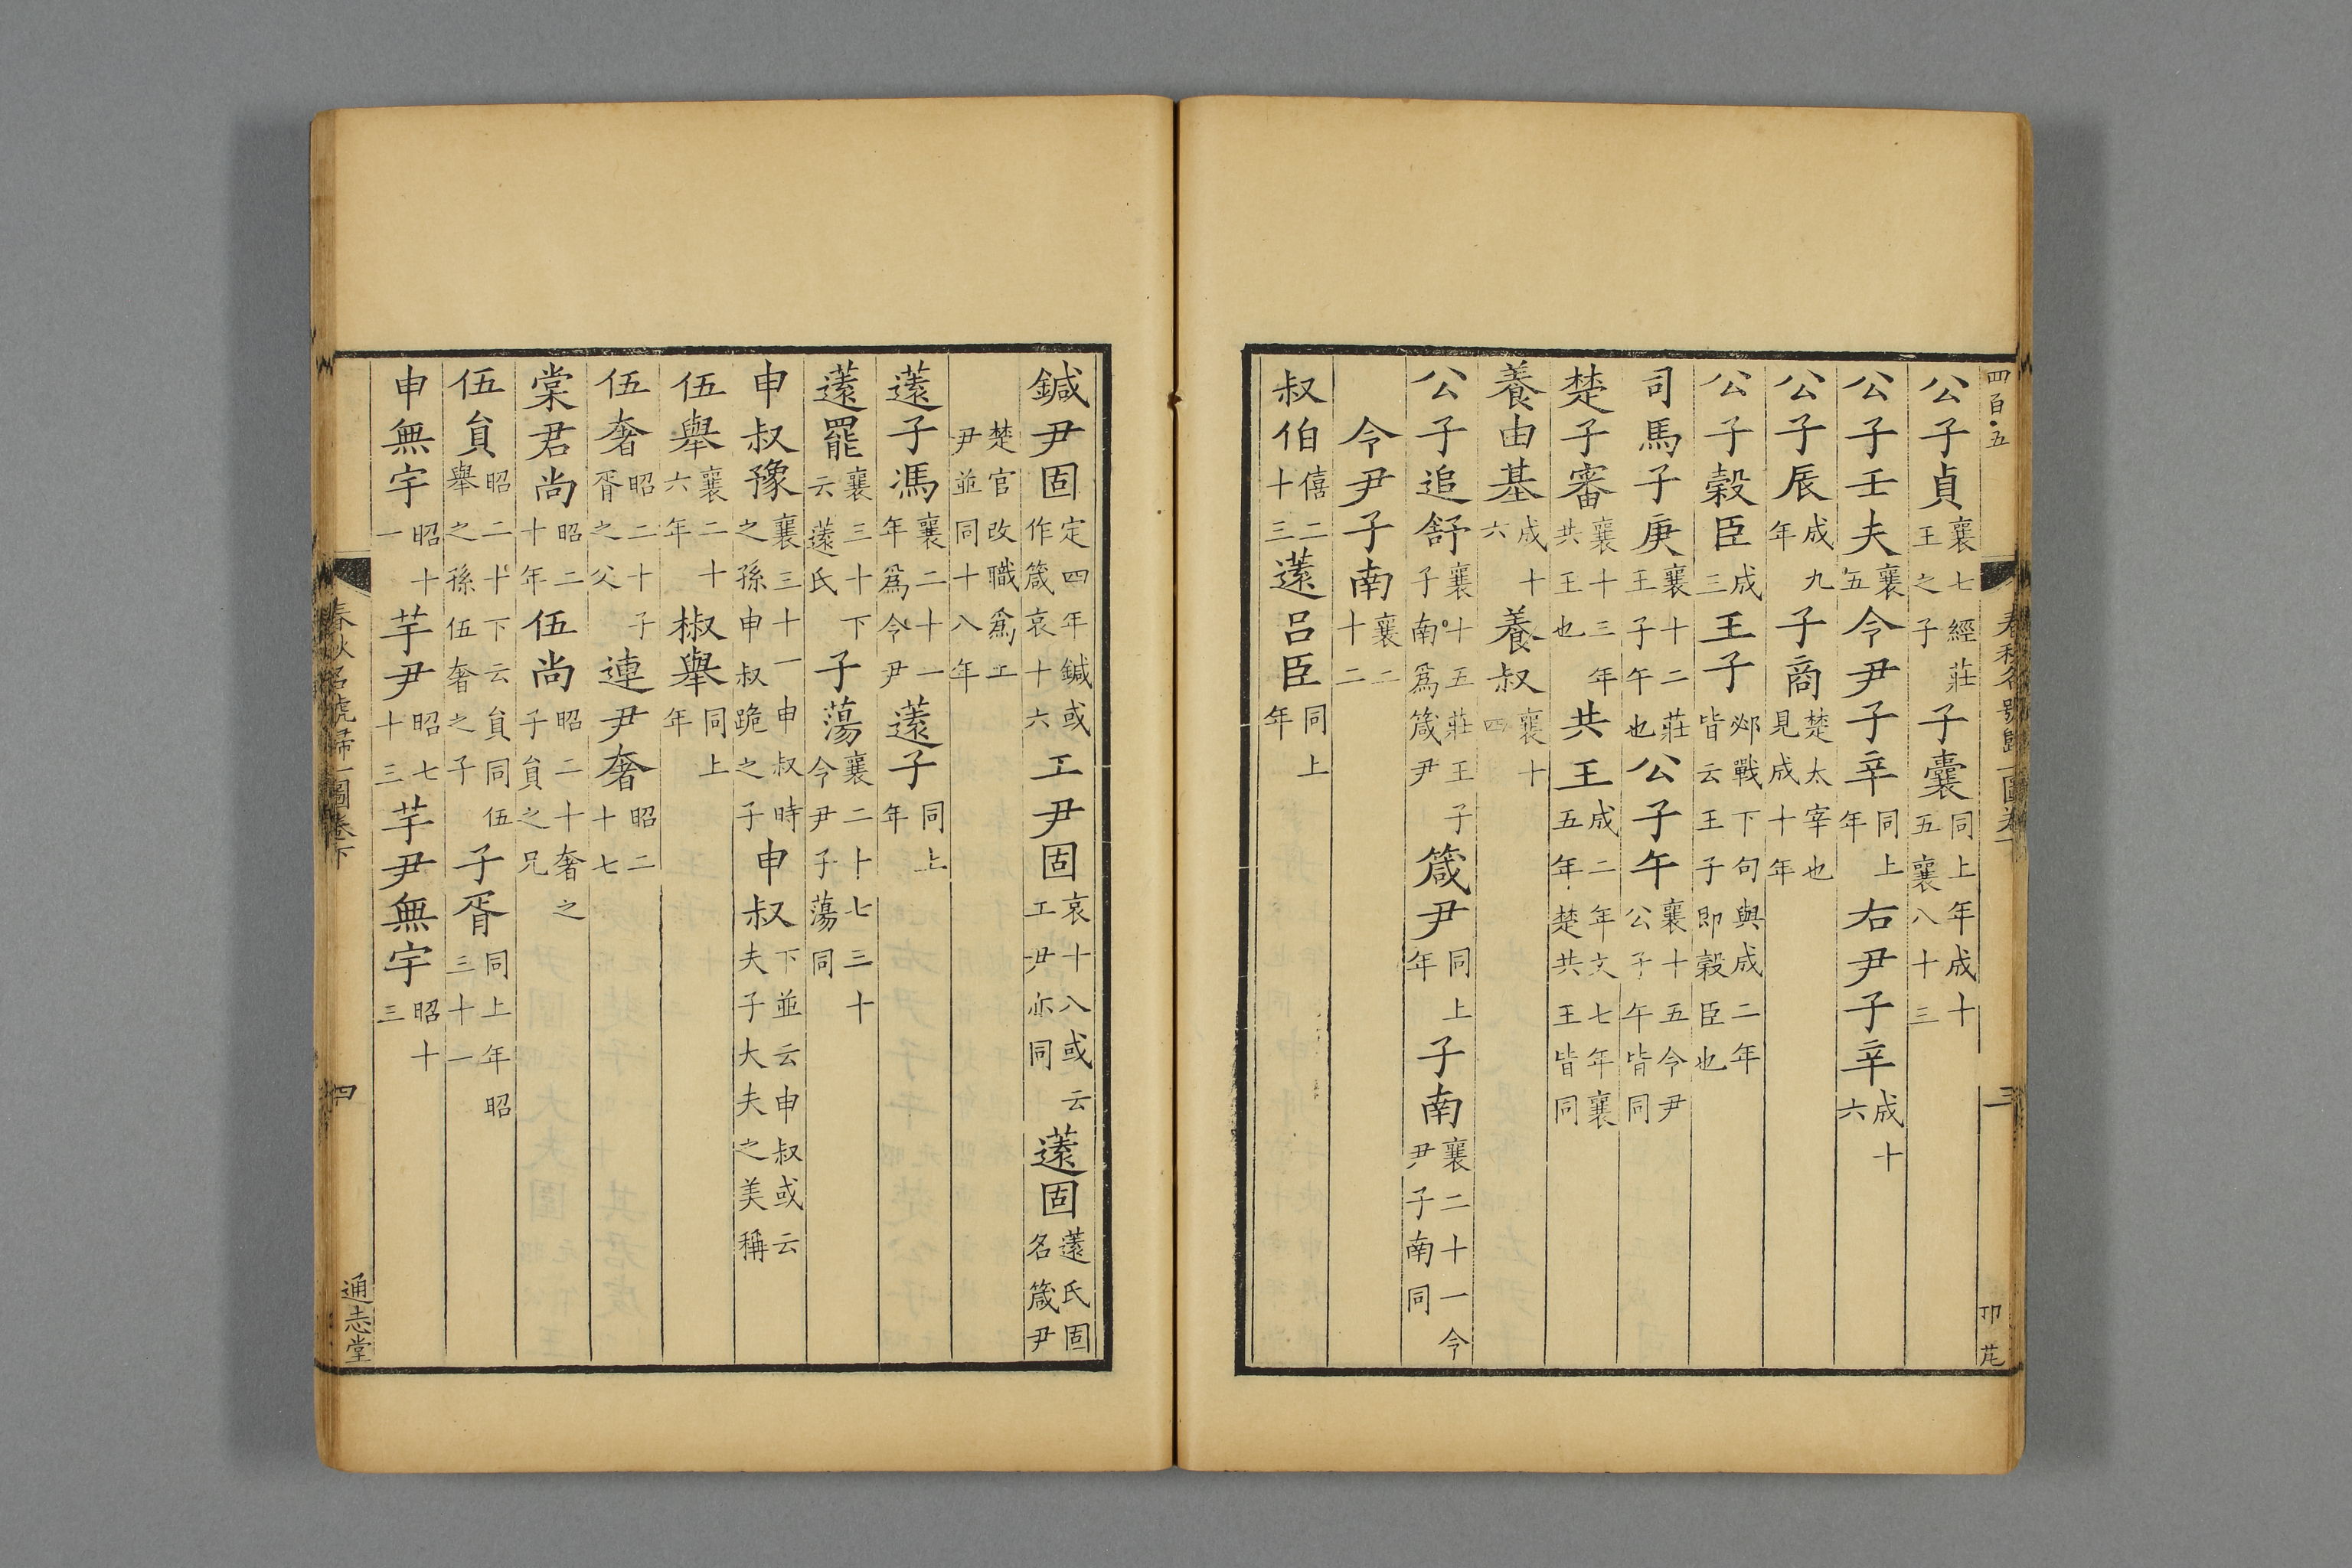 四百五
春秋名號歸一圖卷下
三
公子貞襄七經莊王之子子囊同上年成十五襄八十三
公子壬夫襄五令尹子辛同上年右尹子辛成十六
公子辰成九年子商楚太宰也見成十年
公子榖臣成三王子邲戰下句與成二年皆云王子即榖臣也
司馬子庚襄十二莊王子午也公子午襄十五令尹公子午皆同
楚子審襄十三年共王也共王成二年文七年襄五年楚共王皆同
養由基成十六養叔襄十四
公子追舒襄十五莊王子子南爲箴尹箴尹同上年子南襄二十一令尹子南同
令尹子南襄二十二
叔伯僖二十三薳呂臣同上年
鍼尹固定四年鍼或作箴哀十六工尹固哀十八或云工尹亦同薳固薳氏固名箴尹
楚官改職爲工尹並同十八年
薳子馮襄二十一年爲令尹薳子同上年
薳罷襄三十下云薳氏子蕩襄二十七三十令尹子蕩同
申叔豫襄三十一申叔時之孫申叔跪之子申叔下並云申叔或云夫子大夫之美稱
伍舉襄二十六年椒舉同上年
伍奢昭二十子胥之父連尹奢昭二十七
棠君尚昭二十年伍尚昭二十奢之子員之兄
伍員昭二十下云員同伍舉之孫伍奢之子子胥同上年昭三十一
申無宇昭十一芋尹昭七十三芋尹無宇昭十三
春秋名號歸一圖卷下
四
通志堂